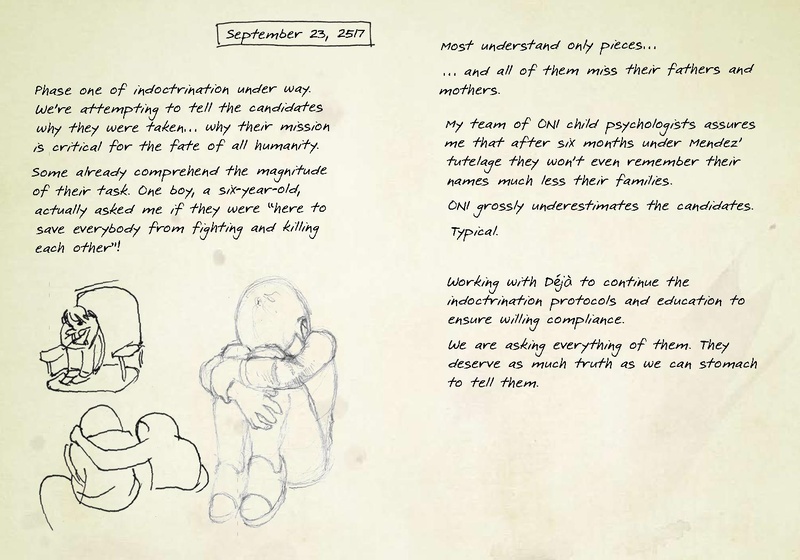 September 23, 2517
Phase one of indoctrination under way.
We're attempting to tell the candidates
why they were taken... why their mission
is critical for the fate of all humanity.
Some already comprehend the magnitude
of their task. One boy, a six-year-old,
actually asked me if they were "here to
save everybody from fighting and killing
each other"!
Most understand only pieces...
... and all of them miss their fathers and
mothers.
My team of ONI child psychologists assures
me that after six months under Mendez'
tutelage they won't even remember their
names much less their families.
ONI grossly underestimates the candidates.
Typical.
Working with Déjà to continue the
indoctrination protocols and education to
ensure willing compliance.
We are asking everything of them. They
deserve as much truth as we can stomach
to tell them.